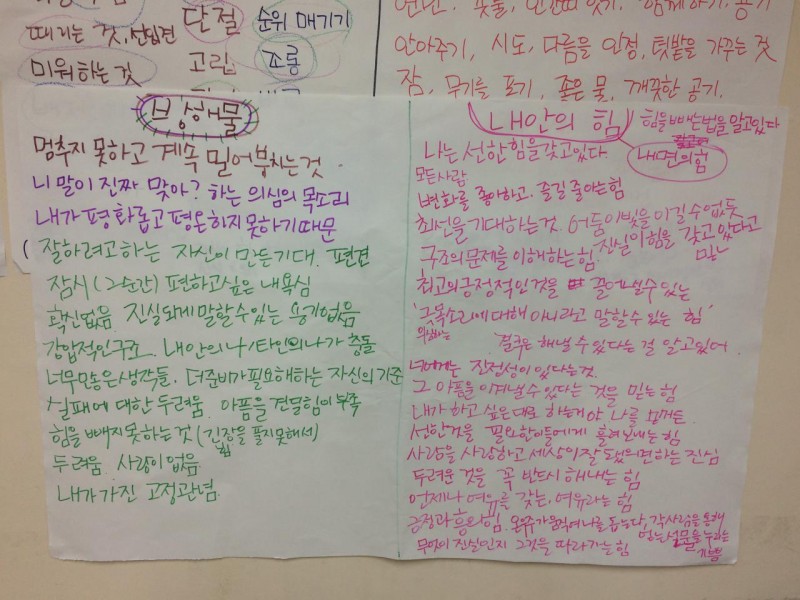 때리는 것, 선입견
단절
순위 매기기
미워하는 것
고립
조롱
안아주기, 시도, 다름을 인정, 텃밭을 가꾸는 것
잠, 무기를 포기, 좋은 물, 깨끗한 공기.
장애물
멈추지 못하고 계속 밀어붙이는 것.
니 말이 진짜 맞아? 하는 의심의 목소리
내가 평화롭고 평온하지 못하기 때문
잘하려고 하는 자신이 만든 기대. 편견
잠시 (그 순간) 편하고 싶은 내 욕심
확신없음 진실되게 말할 수 있는 용기 없음
강압적인 구조. 내 안의 나/타인의 나가 충돌
너무 많은 생각들. 더 준비가 필요해 하는 자신의 기준
실패에 대한 두려움. 아픔을 견딜 힘의 부족
힘을 빼지 못하는 것 (긴장을 풀지 못해서)
힘
두려움 사랑이 없음
내가 가진 고정관념.
내 안의 힘
힘을 빼는 법을 알고 있다
내면의 힘
나는 선한 힘을 갖고 있다
모든 사람
변화를 좋아하고, 즐길 줄 아는 힘
최선을 기대하는 것. 어둠이 빛을 이길 수 없듯
진실이 힘을 갖고 있다고
구조의 문제를 이해하는 힘
최고의 긍정적인 것을 끌어낼 수 있는
'그 목소리에 대해 아니라고 말할 수 있는 힘'
결국은 해낼 수 있다는 걸 알고 있어
너에게는 진정성이 있다는 것.
그 아픔을 이겨낼 수 있다는 것을 믿는 힘
내가 하고 싶은 대로 하는 거야 나를
선한 것을 필요한 이들에게 흘려보내는 힘
사람을 사랑하고 세상이 잘 됐으면 하는 진심
두려운 것을 꼭 반드시 해내는 힘
언제나 여유를 갖는, 여유라는 힘
긍정과 흥의 힘. 온 우주가 움직여 나를 돕는다, 각 사람을 통해
무엇이 진실인지 그것을 따라가는 힘
얻는 선물을 누리는
기쁨